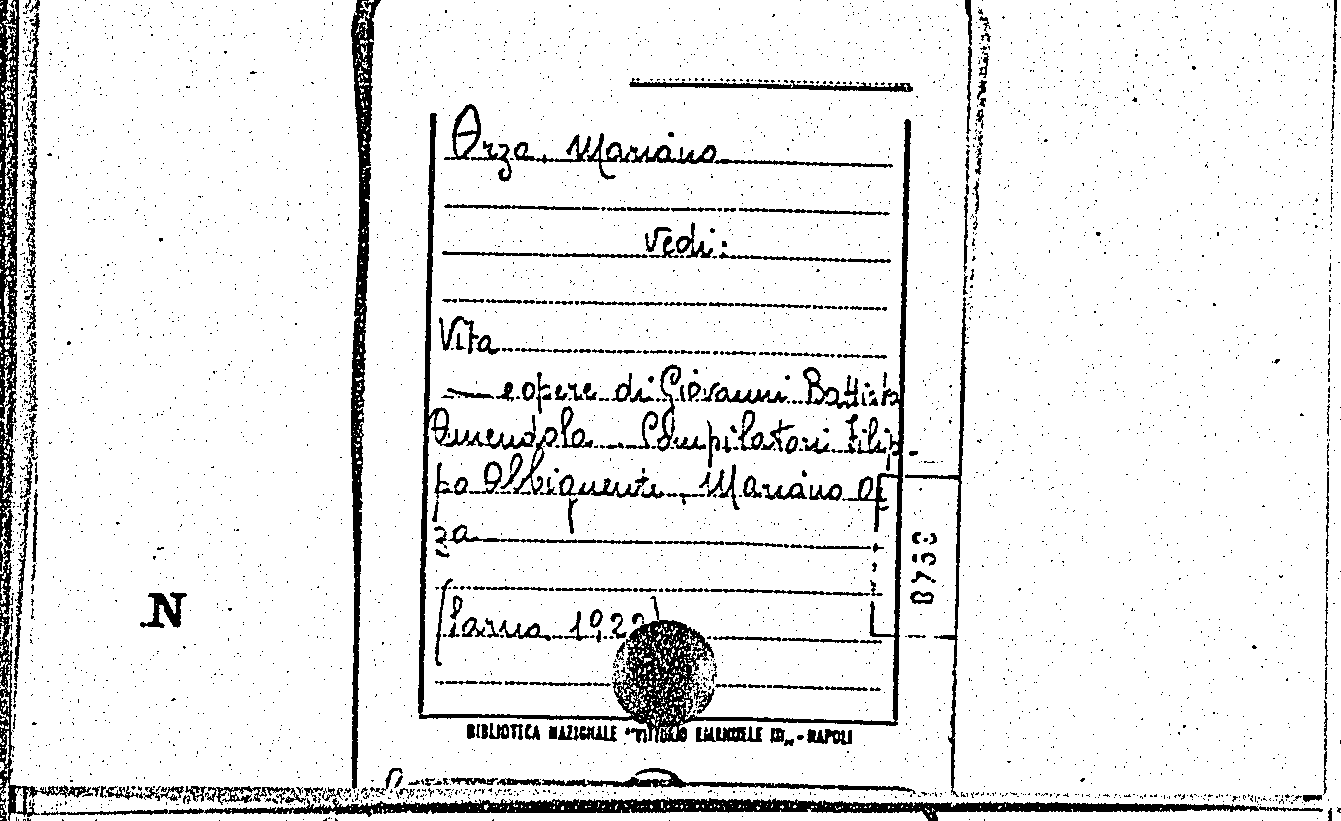 Orza, Mariano
Vedi:
Vita
— e opere di Giovanni Battista
Amendola. Compilatori Filip-
po Abbignente, Mariano Or
za
(Sarno, 1922)
N
BIBLIOTECA NAZIONALE "VITTORIO EMANUELE III" - NAPOLI